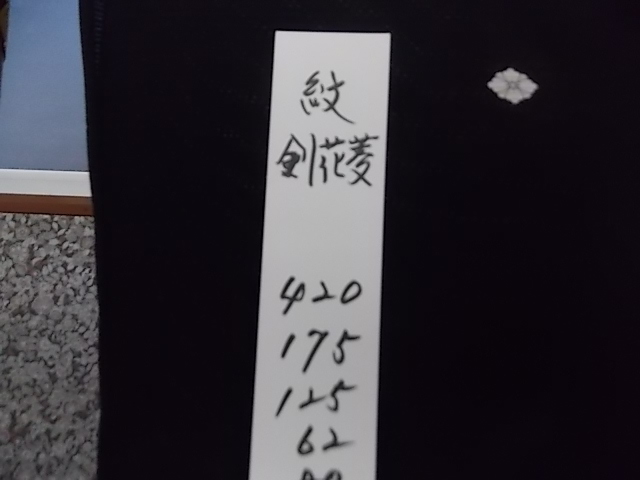 紋
剣花菱
420
175
125
62